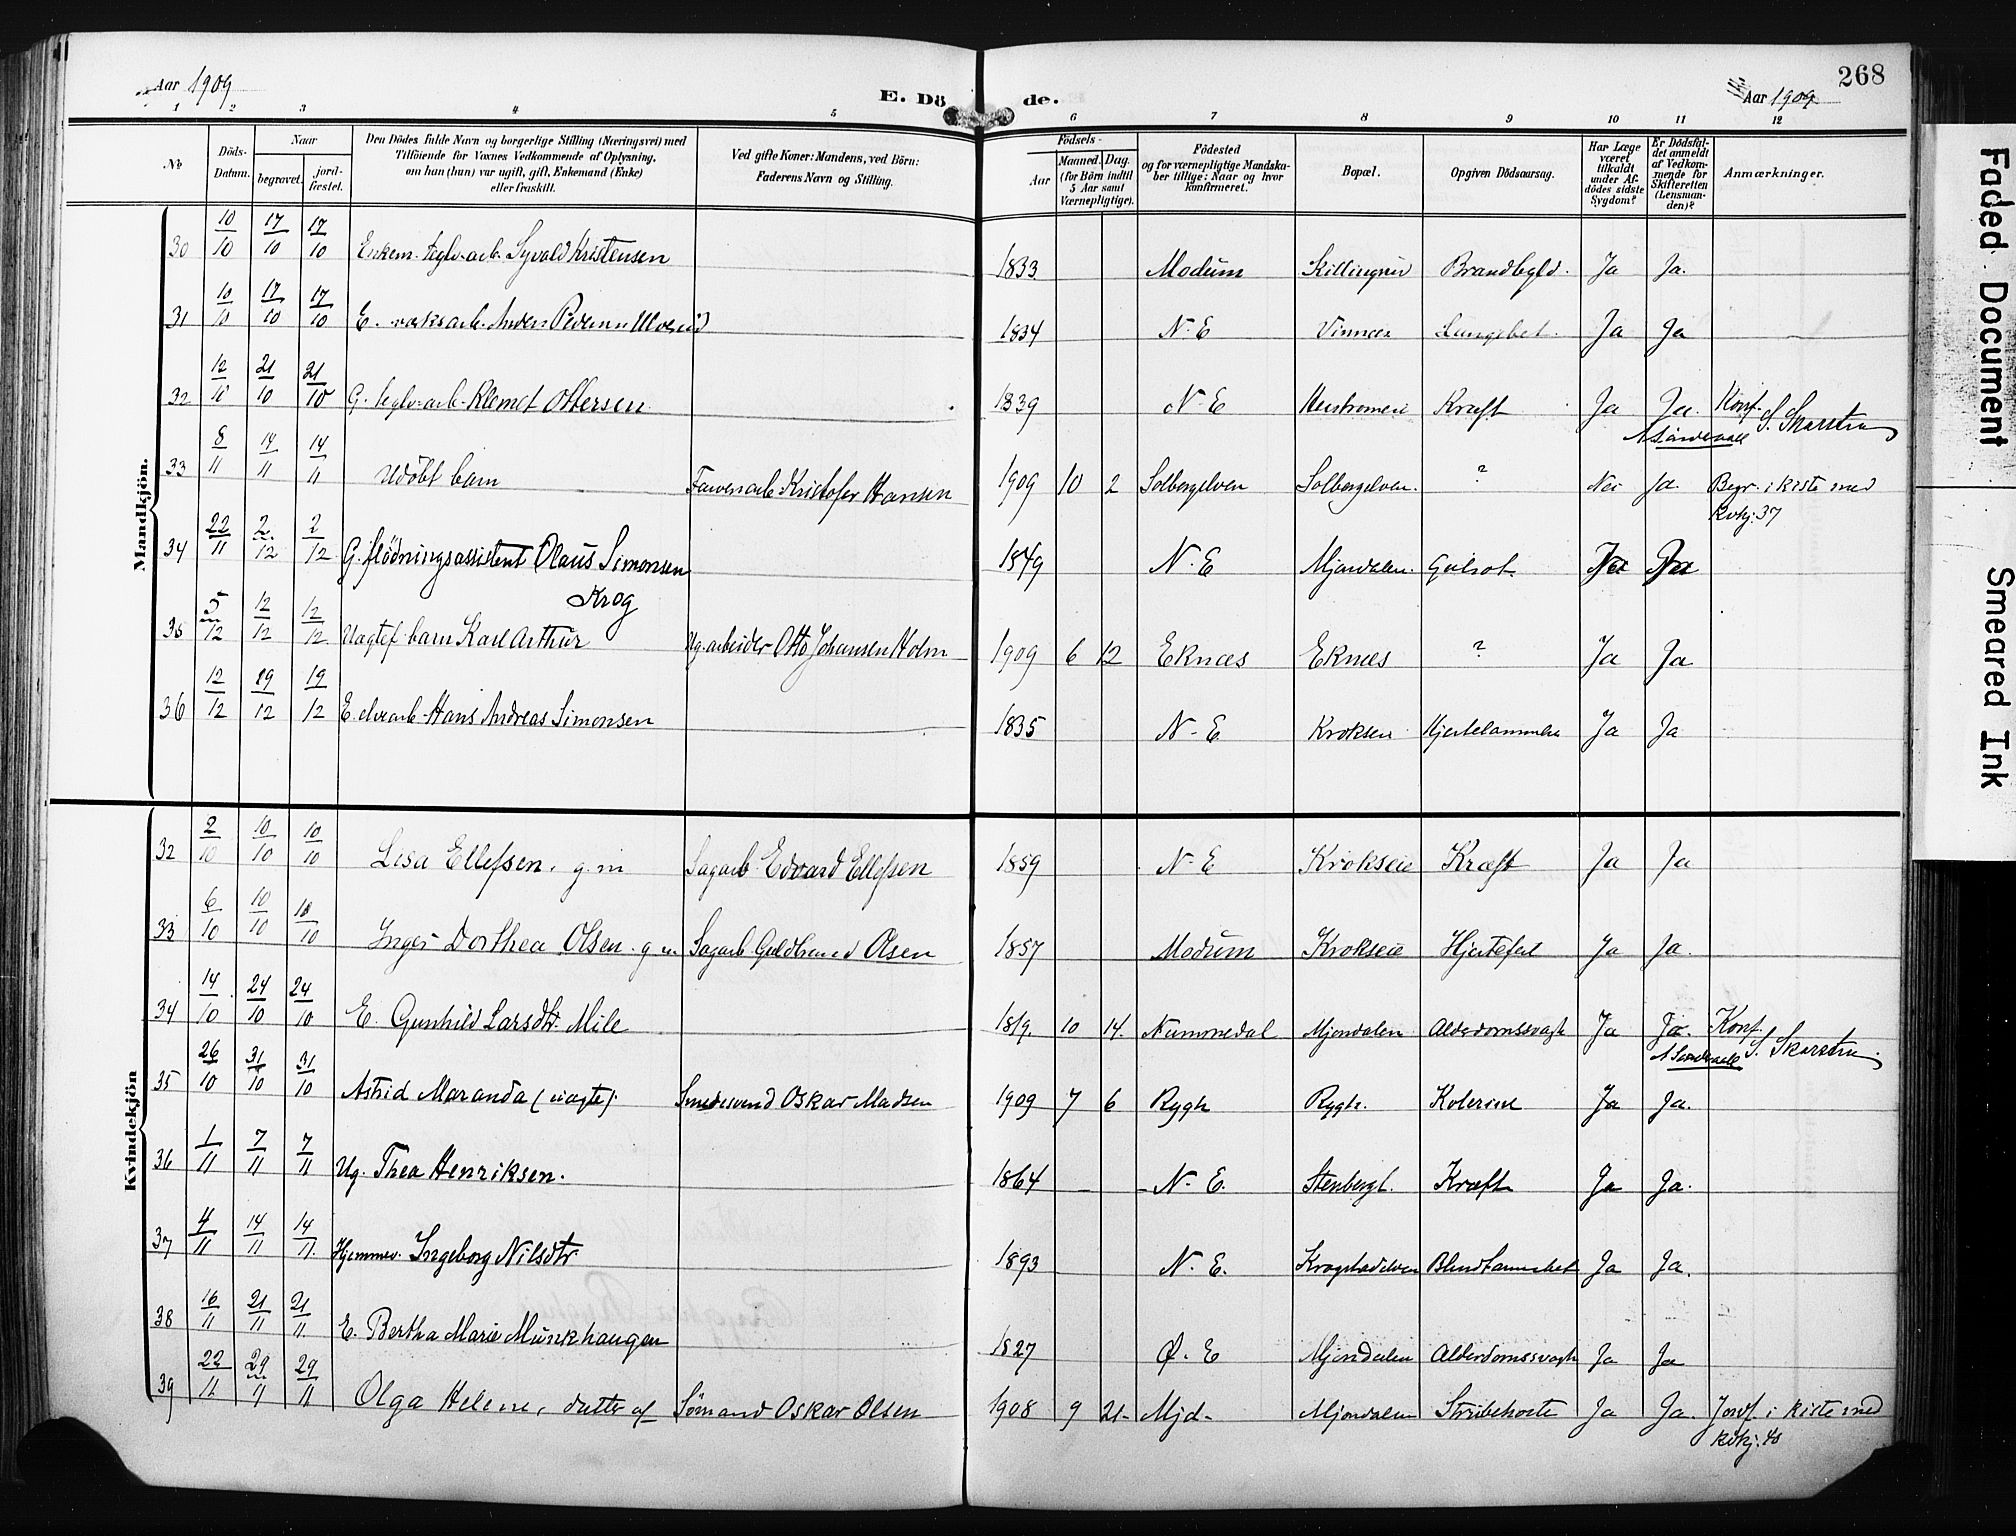 Aar 1909
E. Dö de.
Aar 1909
268
1 2 3 4 5 6 7 8 9 10 11 12
No
Döds-Datum.
Naar
begravet.
jord-fæstet.
Den Dödes fulde Navn og borgerlige Stilling (Næringsvei) med
Tilföiende for Voxnes Vedkommende af Oplysning,
om han (hun) var ugift, gift, Enkemand (Enke)
eller fraskilt.
Ved gifte Koner: Mandens, ved Börn:
Faderens Navn og Stilling.
Födsels-
Aar
Maaned. Dag.
(for Börn indtil
5 Aar samt
Værnepligtige).
Födested
og for værnepligtige Mandska-
ber tillige: Naar og hvor
konfirmeret.
Bopæl.
Opgiven Dödsaarsag.
Har Læge
været
tilkaldt
under Af-
dödes sidste
Sygdom?
Er Dödsfal-
det anmeldt
af Vedkom-
mende for
Skifteretten
(Lensman-
den)?
Anmærkninger.
Mandkjön.
30 10/10 17/10 17/10 Enkem. teglv.arb. Syvald Kristensen 1833 Modum Killingrud Brandbyld. Ja Ja.
31 10/10 17/10 17/10 E. Anders Pedersen 1834 N. E Vinnes Lungebet. Ja Ja
32 12/10 21/10 21/10 G. teglv.arb. Klemet Ottersen 1839 N. E Kræft Ja Ja. Konf. S. Skarstein
33 8/11 14/11 14/11 Udöbt barn Farveriarb. Kristofer Hansen 1909 10 2 Solbergelven Solbergelven. ? Nei Ja. Begr. i kiste med
kvkj. 37
34 22/11 2/12 2/12 G. flödningsassistent Olaus Simonsen
Krog 1849 N. E Mjøndalen. Gulsot.
35 5/12 12/12 12/12 Uægtef. barn Karl Arthur Ug. arbeider Otto Johansen Holm 1909 6 12 Eknæs Eknæs ? Ja Ja
36 12/12 19/12 19/12 E. elvearb. Hans Andreas Simonsen 1835 N. E Kroksen Hjertelammelse Ja Ja
Kvindekjön
32 2/10 10/10 10/10 Lisa Ellefsen, g.m Sagarb. Edvard Ellefsen 1859 N. E Krokseie Kræft Ja Ja
33 6/10 10/10 10/10 Inger Dorthea Olsen. g.m. Sagarb. Guldbrand Olsen 1857 Modum Krokseie Hjertefeil Ja Ja.
34 14/10 24/10 24/10 E. Gunhild Larsdtr. Mile 1819. 10 14. Nummedal Mjøndalen Alderdomssvagh Ja Ja. Konf. S. Skarstein.
35 26/10 31/10 31/10 Astrid Maranda (uægte). Smedesvend Oskar Madsen 1909 7 6 Rygh Rygh. Kolerine Ja Ja.
36 1/11 7/11 7/11 Ug. Thea Henriksen. 1864 N. E. Stenbergt. Kræft Ja Ja.
37 4/11 14/11 14/11. Hjemmev. Ingeborg Nilsdtr 1893 N. E. Krogstadelven Blindtarmsbet Ja Ja.
38 16/11 21/11 21/11. E. Bertha Marie Munkhaugen 1827 Ø. E Mjøndalen Alderdomssvagh Ja Ja
39 22/11 29/11 29/11 Olga Helene, datter af Sømand Oskar Olsen 1908 9 21 Mjd. Mjøndalen Strubehoste Ja Ja. Jordf. i kiste med
kvkj. 40
Faded Document
Smeared Ink